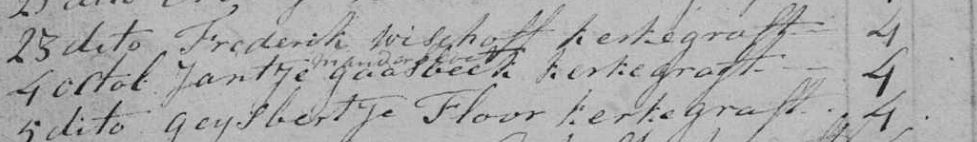 23 dito Frederik Wischoff kerkegraft 4
4 octob Jantje Gaasbeek kerkegraft 4
5 dito Geysbertje Floor kerkegraft 4